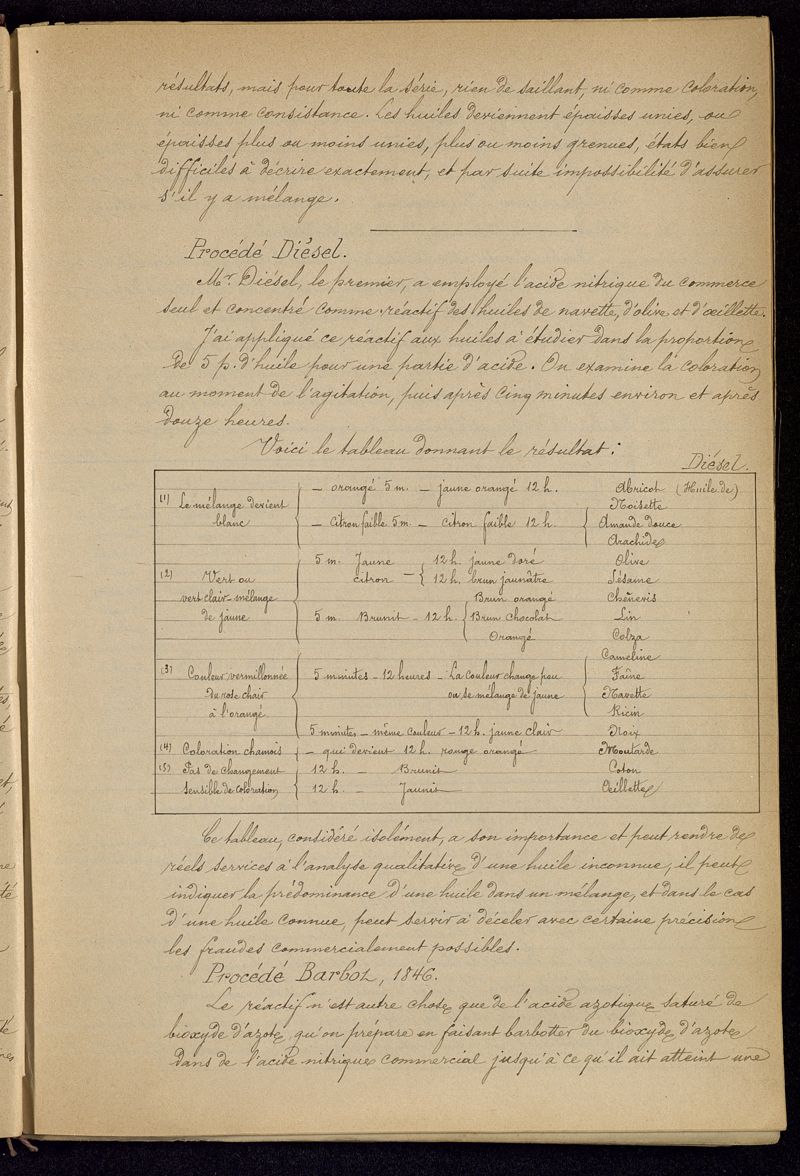 résultats, mais pour toute la série, rien de saillant, ni comme coloration,
ni comme consistance. Les huiles deviennent épaisses unies, ou
épaisses plus ou moins unies, plus ou moins grenues, états bien
difficiles à décrire exactement, et par suite impossibilité d'assurer
s'il y a mélange.
Procédé Diésel.
Mr. Diésel, le premier, a employé l'acide nitrique du commerce
seul et concentré comme réactif des huiles de navette, d'olive et d'œillette.
J'ai appliqué ce réactif aux huiles à étudier dans la proportion
de 5 p. d'huile pour une partie d'acide. On examine la coloration
au moment de l'agitation, puis après cinq minutes environ et après
douze heures.
Voici le tableau donnant le résultat :
Diésel.
– orangé 5 m. – jaune orangé 12 h. Abricot (Huile de)
(1) Le mélange devient Noisette
blanc – citron faible 5 m – citron faible 12 h. Amande douce
Arachides
5 m. Jaune 12 h. jaune doré Olive
(2) Vert ou citron – 12 h. brun jaunâtre Sésame
vert clair – mélange Brun orangé Chènevis
de jaune 5 m. Brunit – 12 h. Brun chocolat Lin
Orangé Colza
Cameline
(3) Couleur vermillonnée 5 minutes – 12 heures – La couleur change peu Faîne
du rose chair ou se mélange de jaune Navette
à l'orangé Ricin
5 minutes – même couleur – 12 h. jaune clair Noix
(4) Coloration chamois – qui devient 12 h. rouge orangé Moutarde
(5) Pas de changement 12 h. – Brunit Coton
sensible de coloration 12 h. – Jaunit Œillette
Ce tableau, considéré isolément, a son importance et peut rendre de
réels services à l'analyse qualitative d'une huile inconnue, il peut
indiquer la prédominance d'une huile dans un mélange, et dans le cas
d'une huile connue, peut servir à déceler avec certaine précision
les fraudes commercialement possibles.
Procédé Barbot, 1846.
Le réactif n'est autre chose que de l'acide azotique saturé de
bioxyde d'azote, qu'on prépare en faisant barbotter du bioxyde d'azote
dans de l'acide nitrique commercial jusqu'à ce qu'il ait atteint une